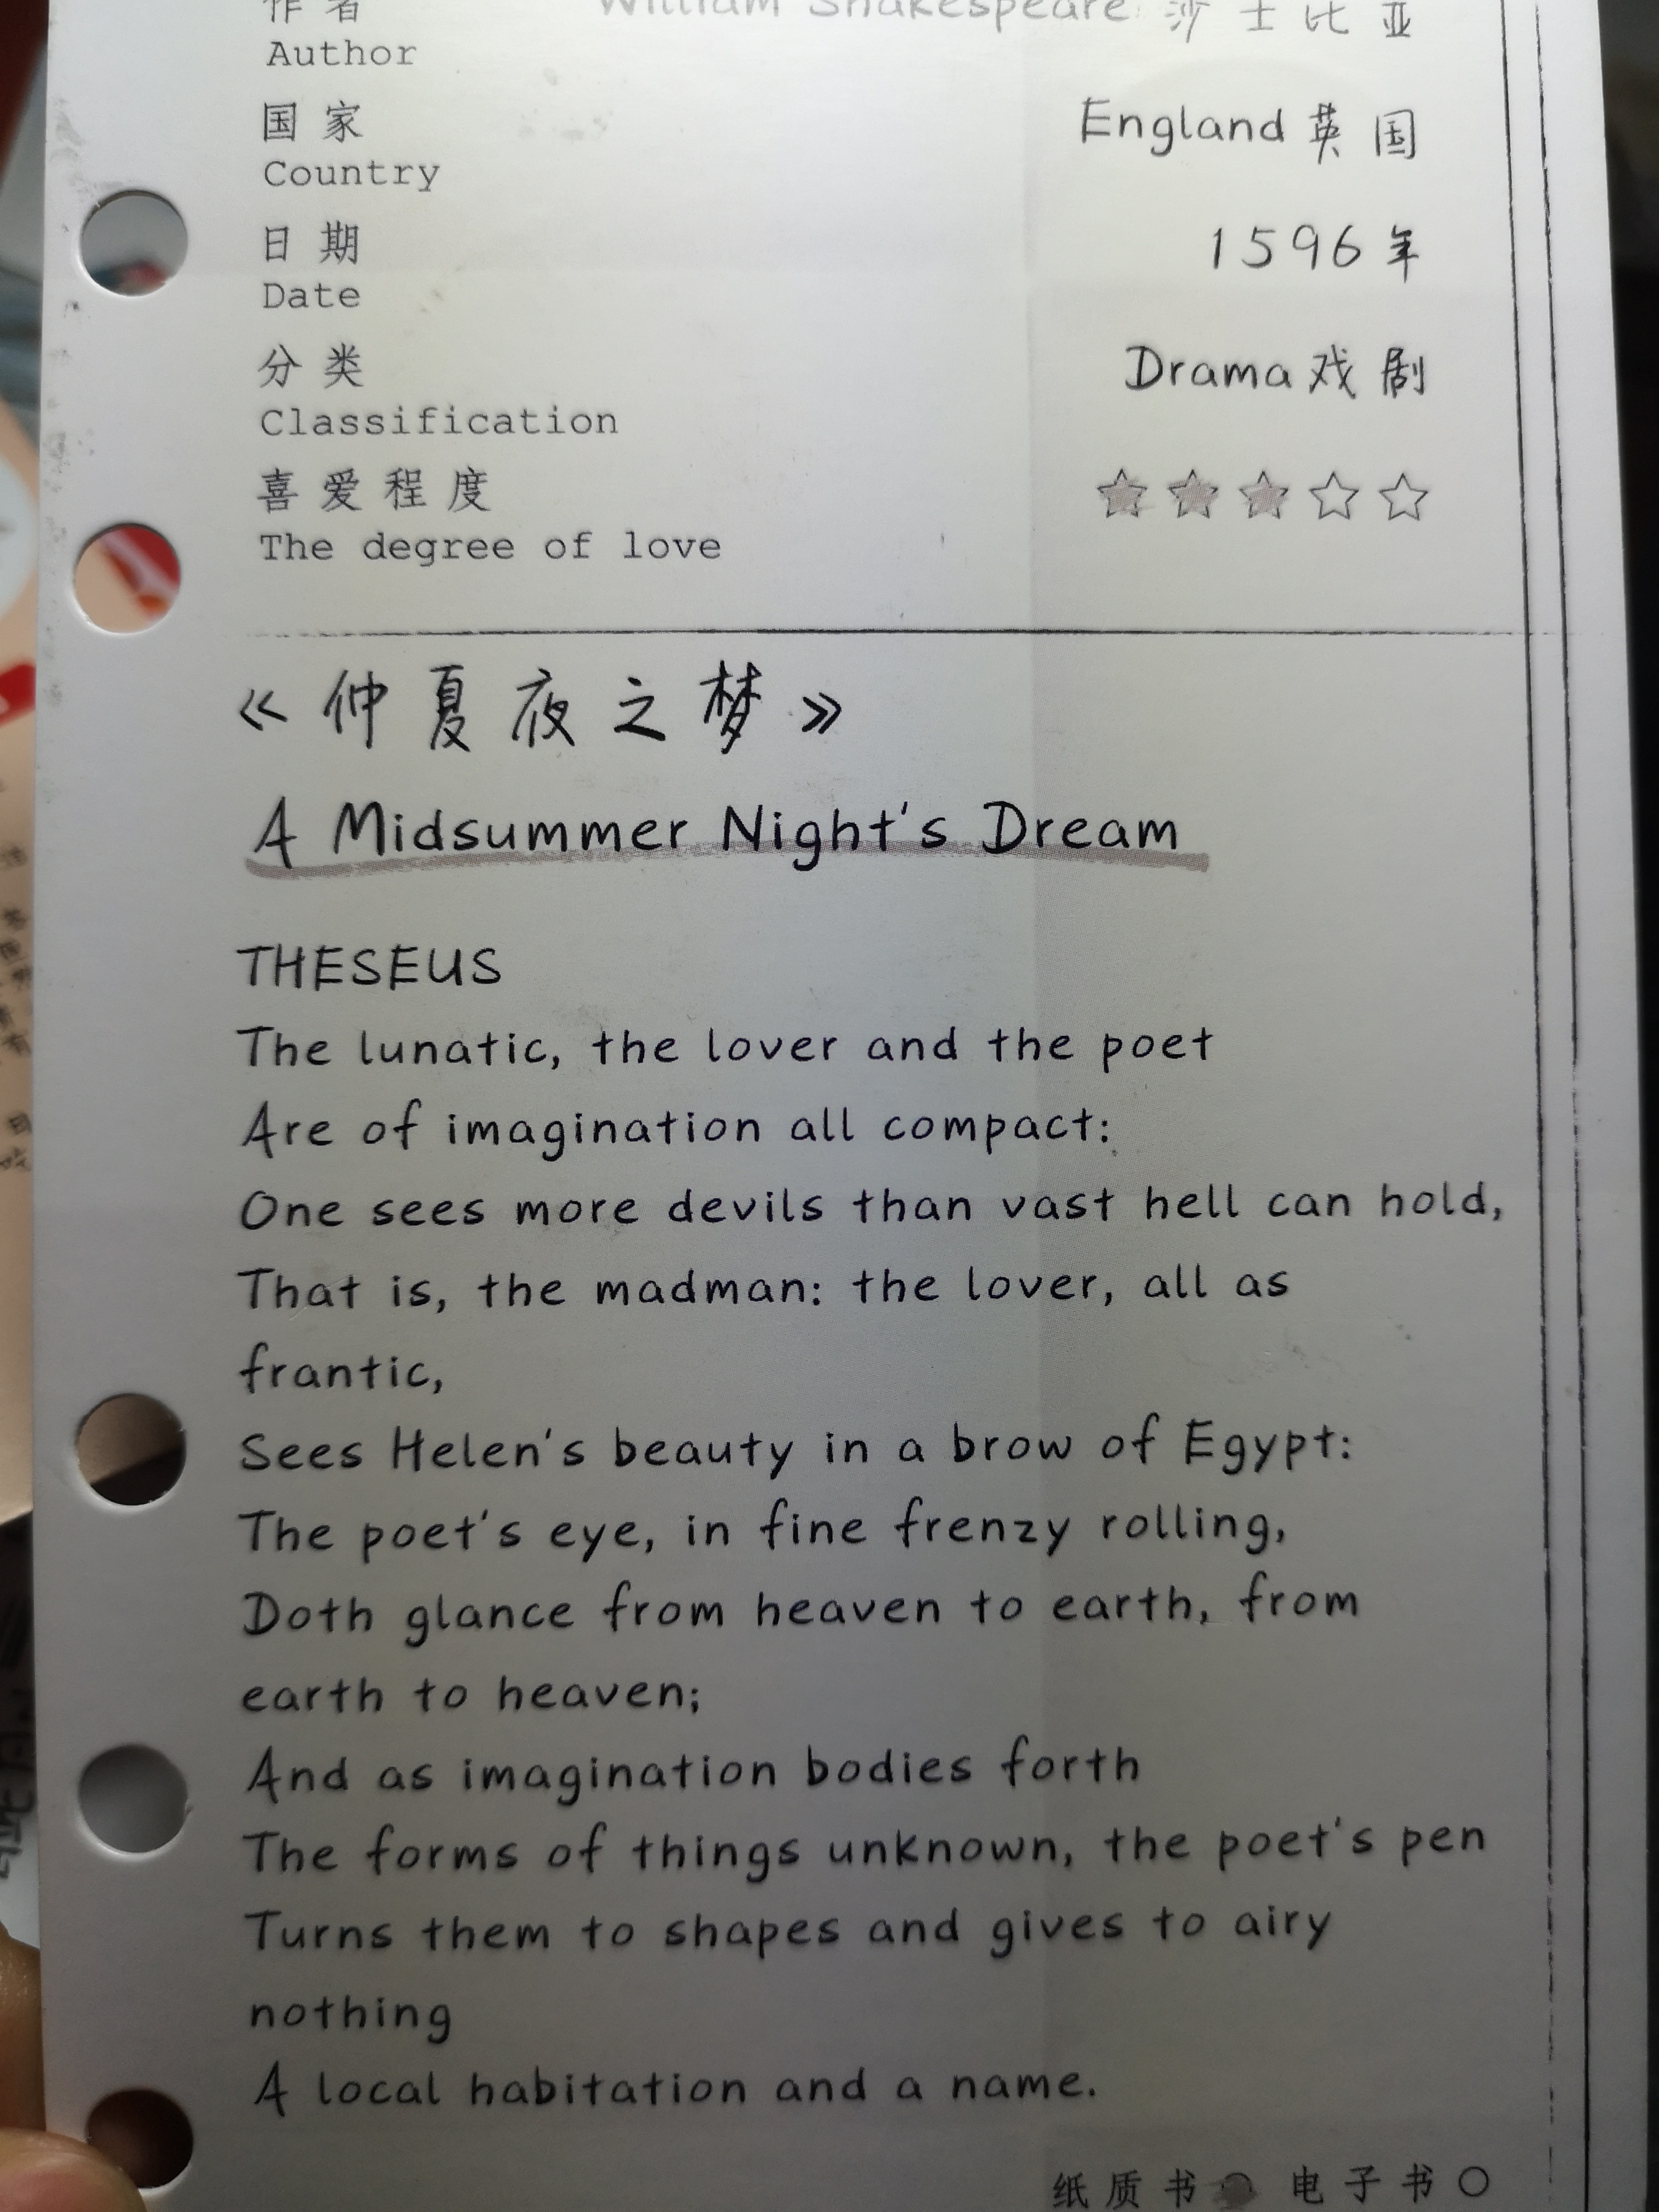 作者
William Shakespeare 莎士比亚
Author
国家
England 英国
Country
日期
1596年
Date
分类
Drama 戏剧
Classification
喜爱程度
The degree of love
《仲夏夜之梦》
A Midsummer Night's Dream
THESEUS
The lunatic, the lover and the poet
Are of imagination all compact:
One sees more devils than vast hell can hold,
That is, the madman: the lover, all as
frantic,
Sees Helen's beauty in a brow of Egypt:
The poet's eye, in fine frenzy rolling,
Doth glance from heaven to earth, from
earth to heaven;
And as imagination bodies forth
The forms of things unknown, the poet's pen
Turns them to shapes and gives to airy
nothing
A local habitation and a name.
纸质书 电子书